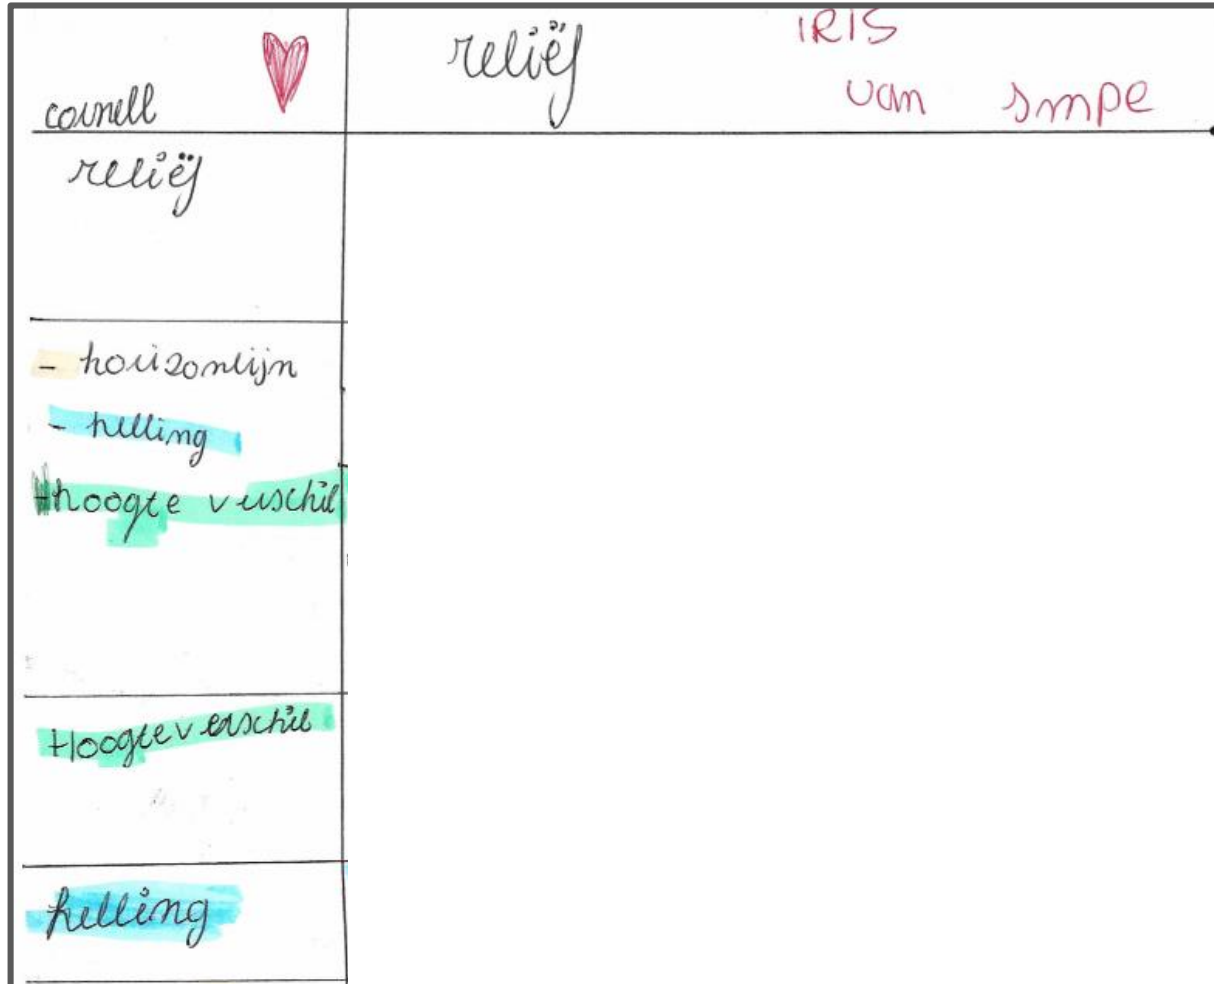 cornell
reliëf
IRIS
van smpe
reliëf
- horizonlijn
- helling
- hoogte verschil
Hoogteverschil
helling